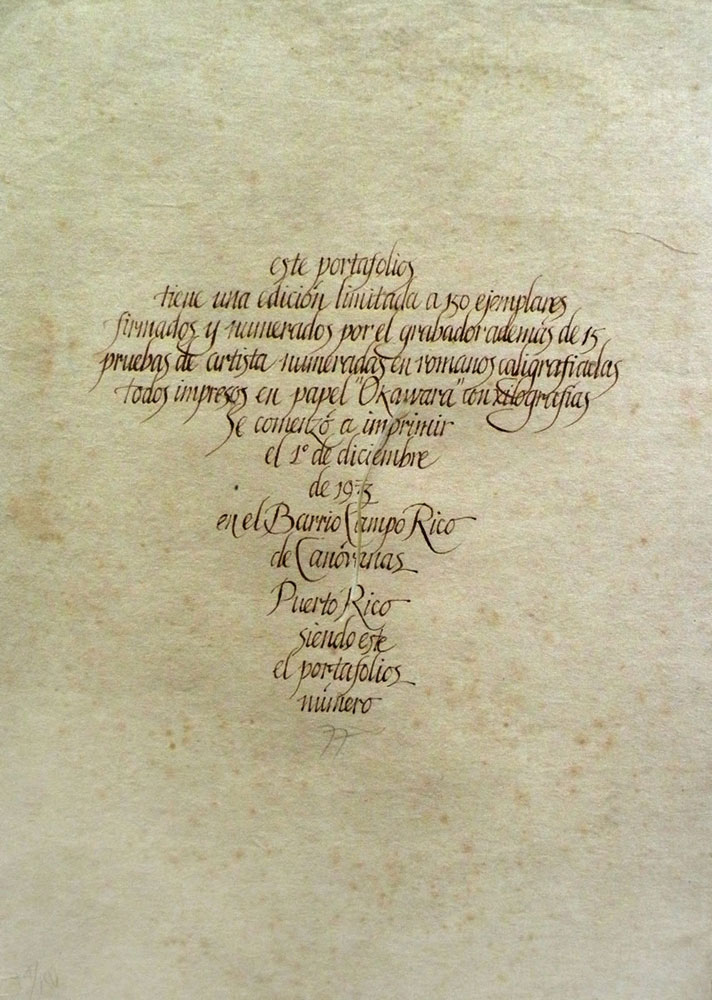 este portafolios
tiene una edición limitada a 150 ejemplares
firmados y numerados por el grabador además de 15
pruebas de artista numeradas en romanos caligrafiadas
todos impresos en papel "Okawara" con xilografías
Se comenzó a imprimir
el 1º de diciembre
de 1973
en el Barrio Campo Rico
de Canóvanas
Puerto Rico
siendo este
el portafolios
número
77